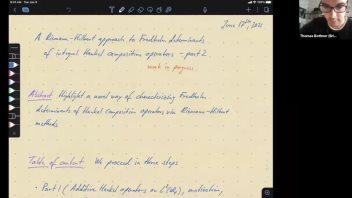 June 17th, 2021
A Riemann-Hilbert approach to Fredholm determinants
of integral Hankel composition operators - part 2
work in progress
Abstract Highlight a novel way of characterizing Fredholm
determinants of Hankel composition operators via Riemann-Hilbert
methods
Table of content We proceed in three steps
• Part 1 ( Additive Hankel operators on
motivation,
Thomas Bothner